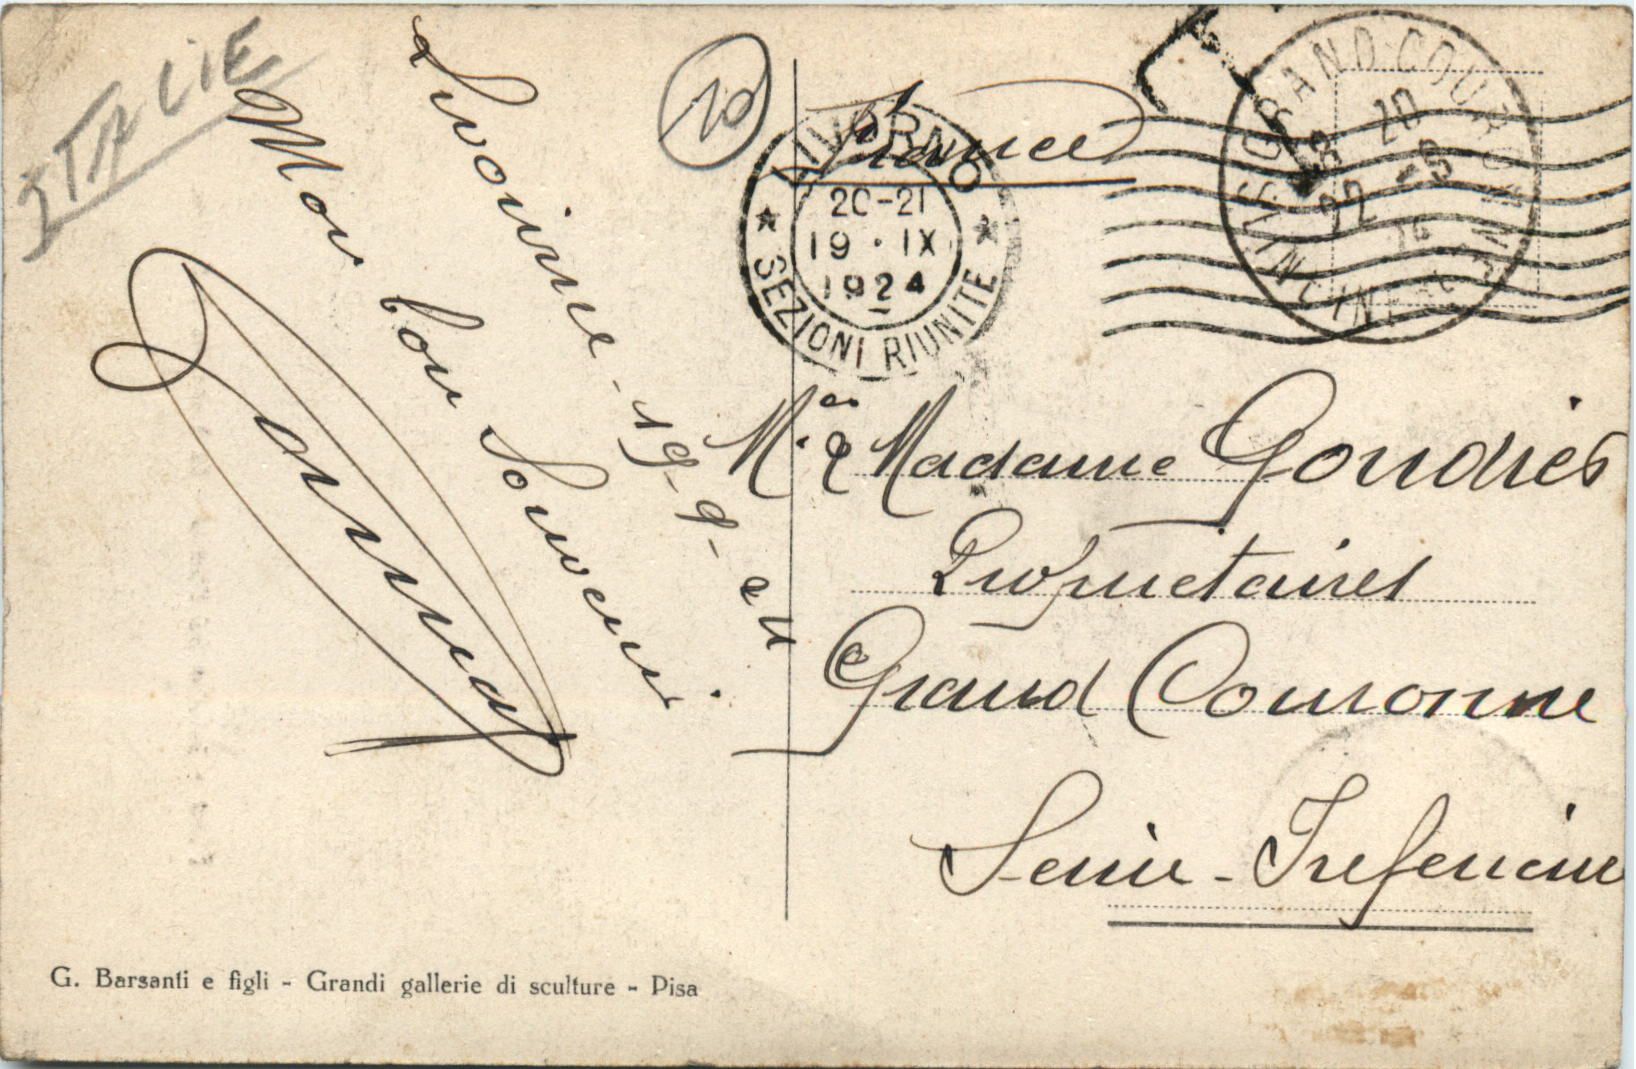 ITALIE
Livourne - 19-9-24
Mon bon Souvenir
10
France
LIVORNO
20-21
19 · IX
1924
SEZIONI RIUNITE
GRAND-COURONNE
SEINE INFRE
18 20
22 -9
24
T
Mr & Madame
Propriétaires
Grand Couronne
Seine-Inferieure
G. Barsanti e figli - Grandi gallerie di sculture - Pisa